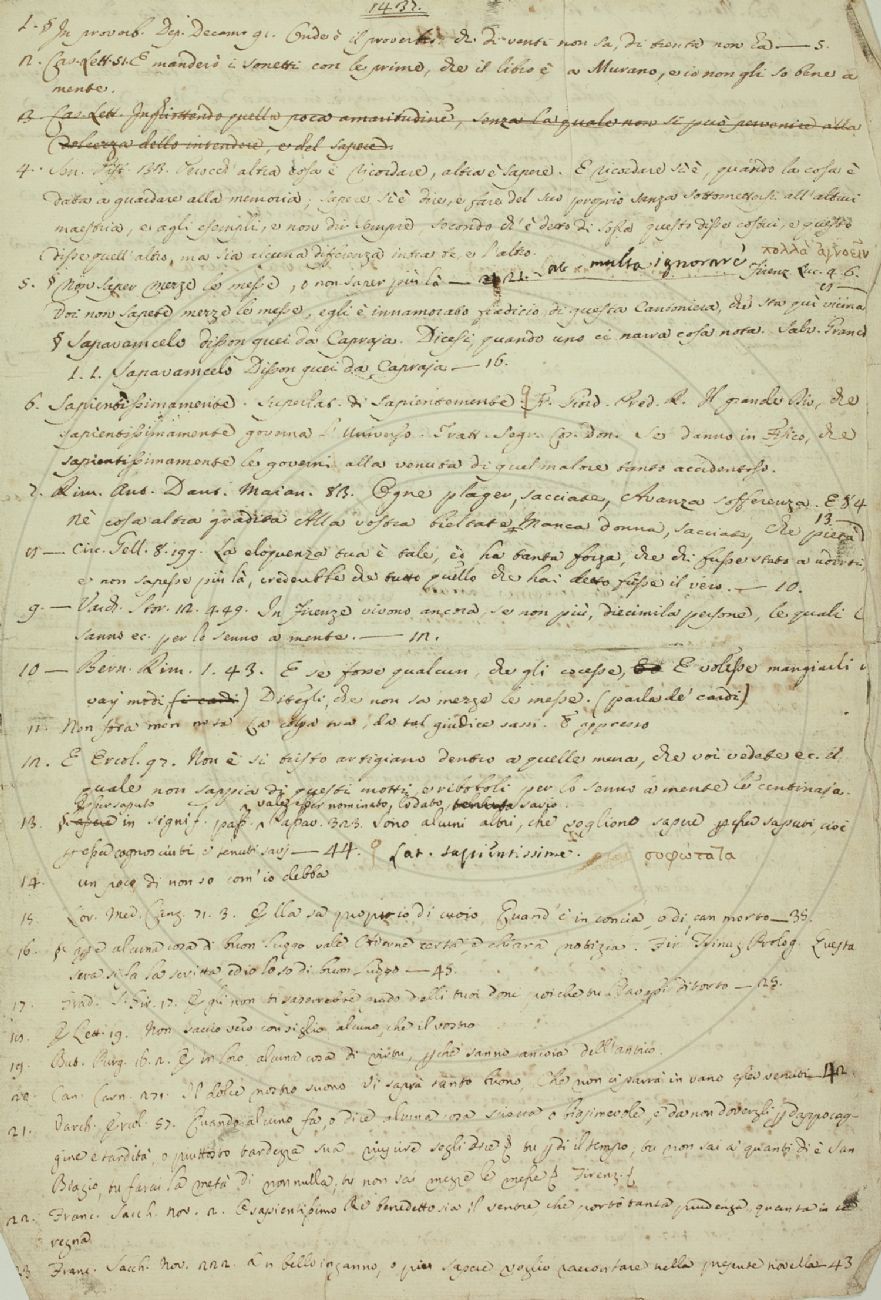 1437.
1. § In proverb. Dep. Decam. 91. Onde è il proverbio: chi di venti non sa, di trenta non ha — 5.
2. Cas. Lett. 51. E manderò i sonetti con le prime, che il libro è a Murano, e io non gli so bene a
mente.
3. Cas. Lett. Inghiottendo quella poca amaritudine, senza la quale non si può pervenire alla
dolcezza dello intendere, e del sapere.
4. Sen. Pist. Perocché altra cosa è ricordare, altra è sapere. E ricordare si è, quando la cosa è
data a guardare alla memoria; sapere si è dire, e fare del suo proprio senza sottomettersi all'altrui
maestria, e agli esempli, e non dir sempre, secondo ch'è detto di sopra questo disse costui, e questo
disse quell'altro, ma sia alcuna differenza intra te, e l'altro.
5. § Non saper mezze le messe, o non saper più là — 21. Lat. multa ignorare πολλὰ ἀγνοεῖν Firenz. Luc. 4. 6.
Voi non sapete mezze le messe, egli è innamorato fradicio di questa Cantoniera, che sta qui vicina
§ Sapavamcelo disson quei da Capraja. Dicesi, quando uno ci narra cosa nota. Salv. Granch.
1. 1. Sapavamcelo Disson quei da Capraja — 16.
6. Sapientissimamente. Superlat. di Sapientemente Fr. Giord. Pred. R. Il grande Dio, che
sapientissimamente governa l'Universo. Tratt. Segr. Cos. Don. Se danno in Fisico, che
sapientissimamente le governi alla venuta di quel malore tanto accidentoso.
7. Rim. Ant. Dant. Maian. Ogne plager, sacciate, Avanza sofferenza. E 84
Nè cosa altra gradita Alla vostra bieltate Manca donna, sacciate, che pietà 13 —
— Circ. Gell. 8. 199. La eloquenza tua è tale, ed ha tanta forza, che chi fusse stato a udirti,
e non sapesse più là, crederebbe che tutto quello che hai detto fusse il vero. — 10.
9. — Varch. Stor. 12. 449. In Firenze vivono ancora, se non più, diecimila persone, le quali l
sanno ec. per lo senno a mente. — 12.
10 — Bern. Rim. 1. 43. E se fosse qualcun, che gli cocesse, E volesse mangiarli i
varj modi (i cardi) Ditegli, che non sa mezze le messe. (parla de' cardi)
11. Non fora men nota La colpa sua, da tal giudice sassi. E appresso
12. E Ercol. 97. Non è sì tristo artigiano dentro a quelle mura, che voi vedete ec. il
quale non sappia di questi motti, e riboboli per lo senno a mente le centinaja.
Esser saputo vale esser nominato, lodato, tenuto savio.
13. § in signif. pass. Sono alcuni altri, che vogliono sapere per esser saputi, cioè
per esser cognosciuti, e tenuti savj — 44. Lat. sapientissime. σοφώτατα
14. un poco di non so com'io debba
15. Lor. Med. Canz. 71. 3. Ella sa proprio di cuoio, Quand'è in concia, o di can morto — 35.
16. § alcuna cosa di buon luogo vale Averne certa, e chiara notizia. Fir. Trinuz. Prolog. Questa
sera si fa la scritta ed io lo so di buon luogo — 45.
17. Egli non ti saperrebbe grado delli tuoi doni poiché tu di torto — 25.
18. E Lett. 19. Non saccio vero consiglio alcuno, che il vostro
19. But. Purg. 16. 2. È in loro alcuna cosa di virtù, perché sanno ancora dell'antico.
20. Can. Carn. 271. Il dolce nostro suono Vi saprà tanto buono, Che non ci parrà in vano esser venuti — 42.
21. Varch. Ercol. 57. Quando alcuno fa, o dice alcuna cosa sciocca o biasimevole, e da non dovergli per dappocag-
gine e tardità, o piuttosto tardezza sua riuscire, se gli dice tu perdi il tempo, tu non sai a quanti dì è San
Biagio, tu farai la metà di nonnulla, tu non sai mezze le messe Firenz.
22. Franc. Sacch. Nov. 2. E sapientissimo Re benedetto sia il ventre, che portò tanta prudenza, quanta in te
regna
23 Franc. Sacch. Nov. 222. Un bello inganno, o pien sapere voglio raccontare nella presente novella — 43